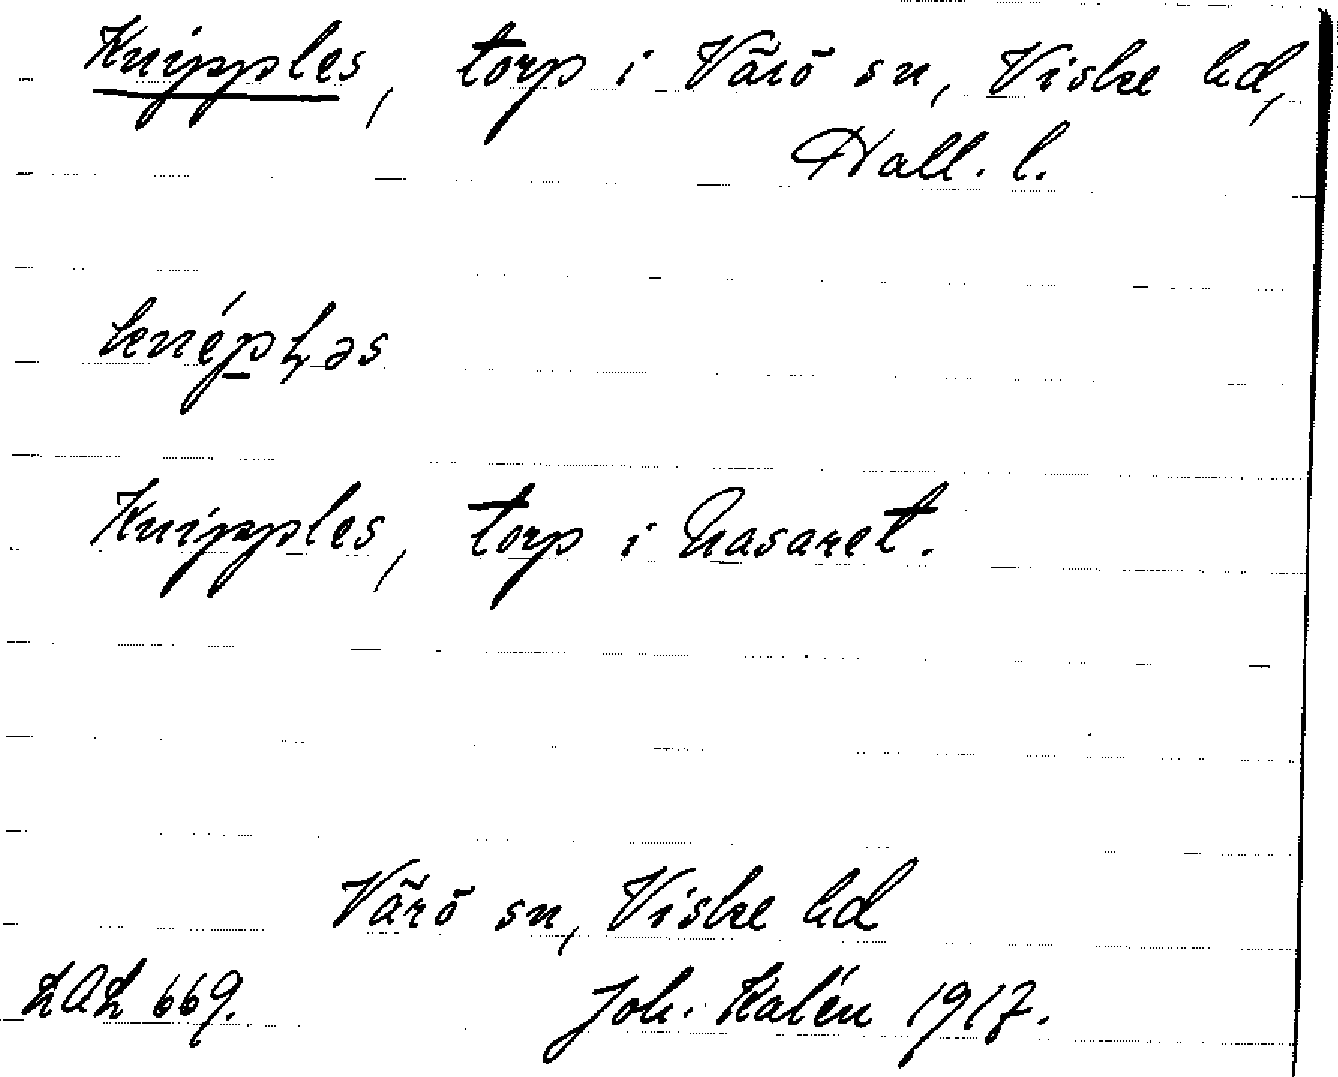 Knipples, torp i Värö sn, Viske hd,
Hall. l.
Knipples, torp i Nasaret.
Värö sn, Viske hd
LAL 669. Joh. Kalén 1917.